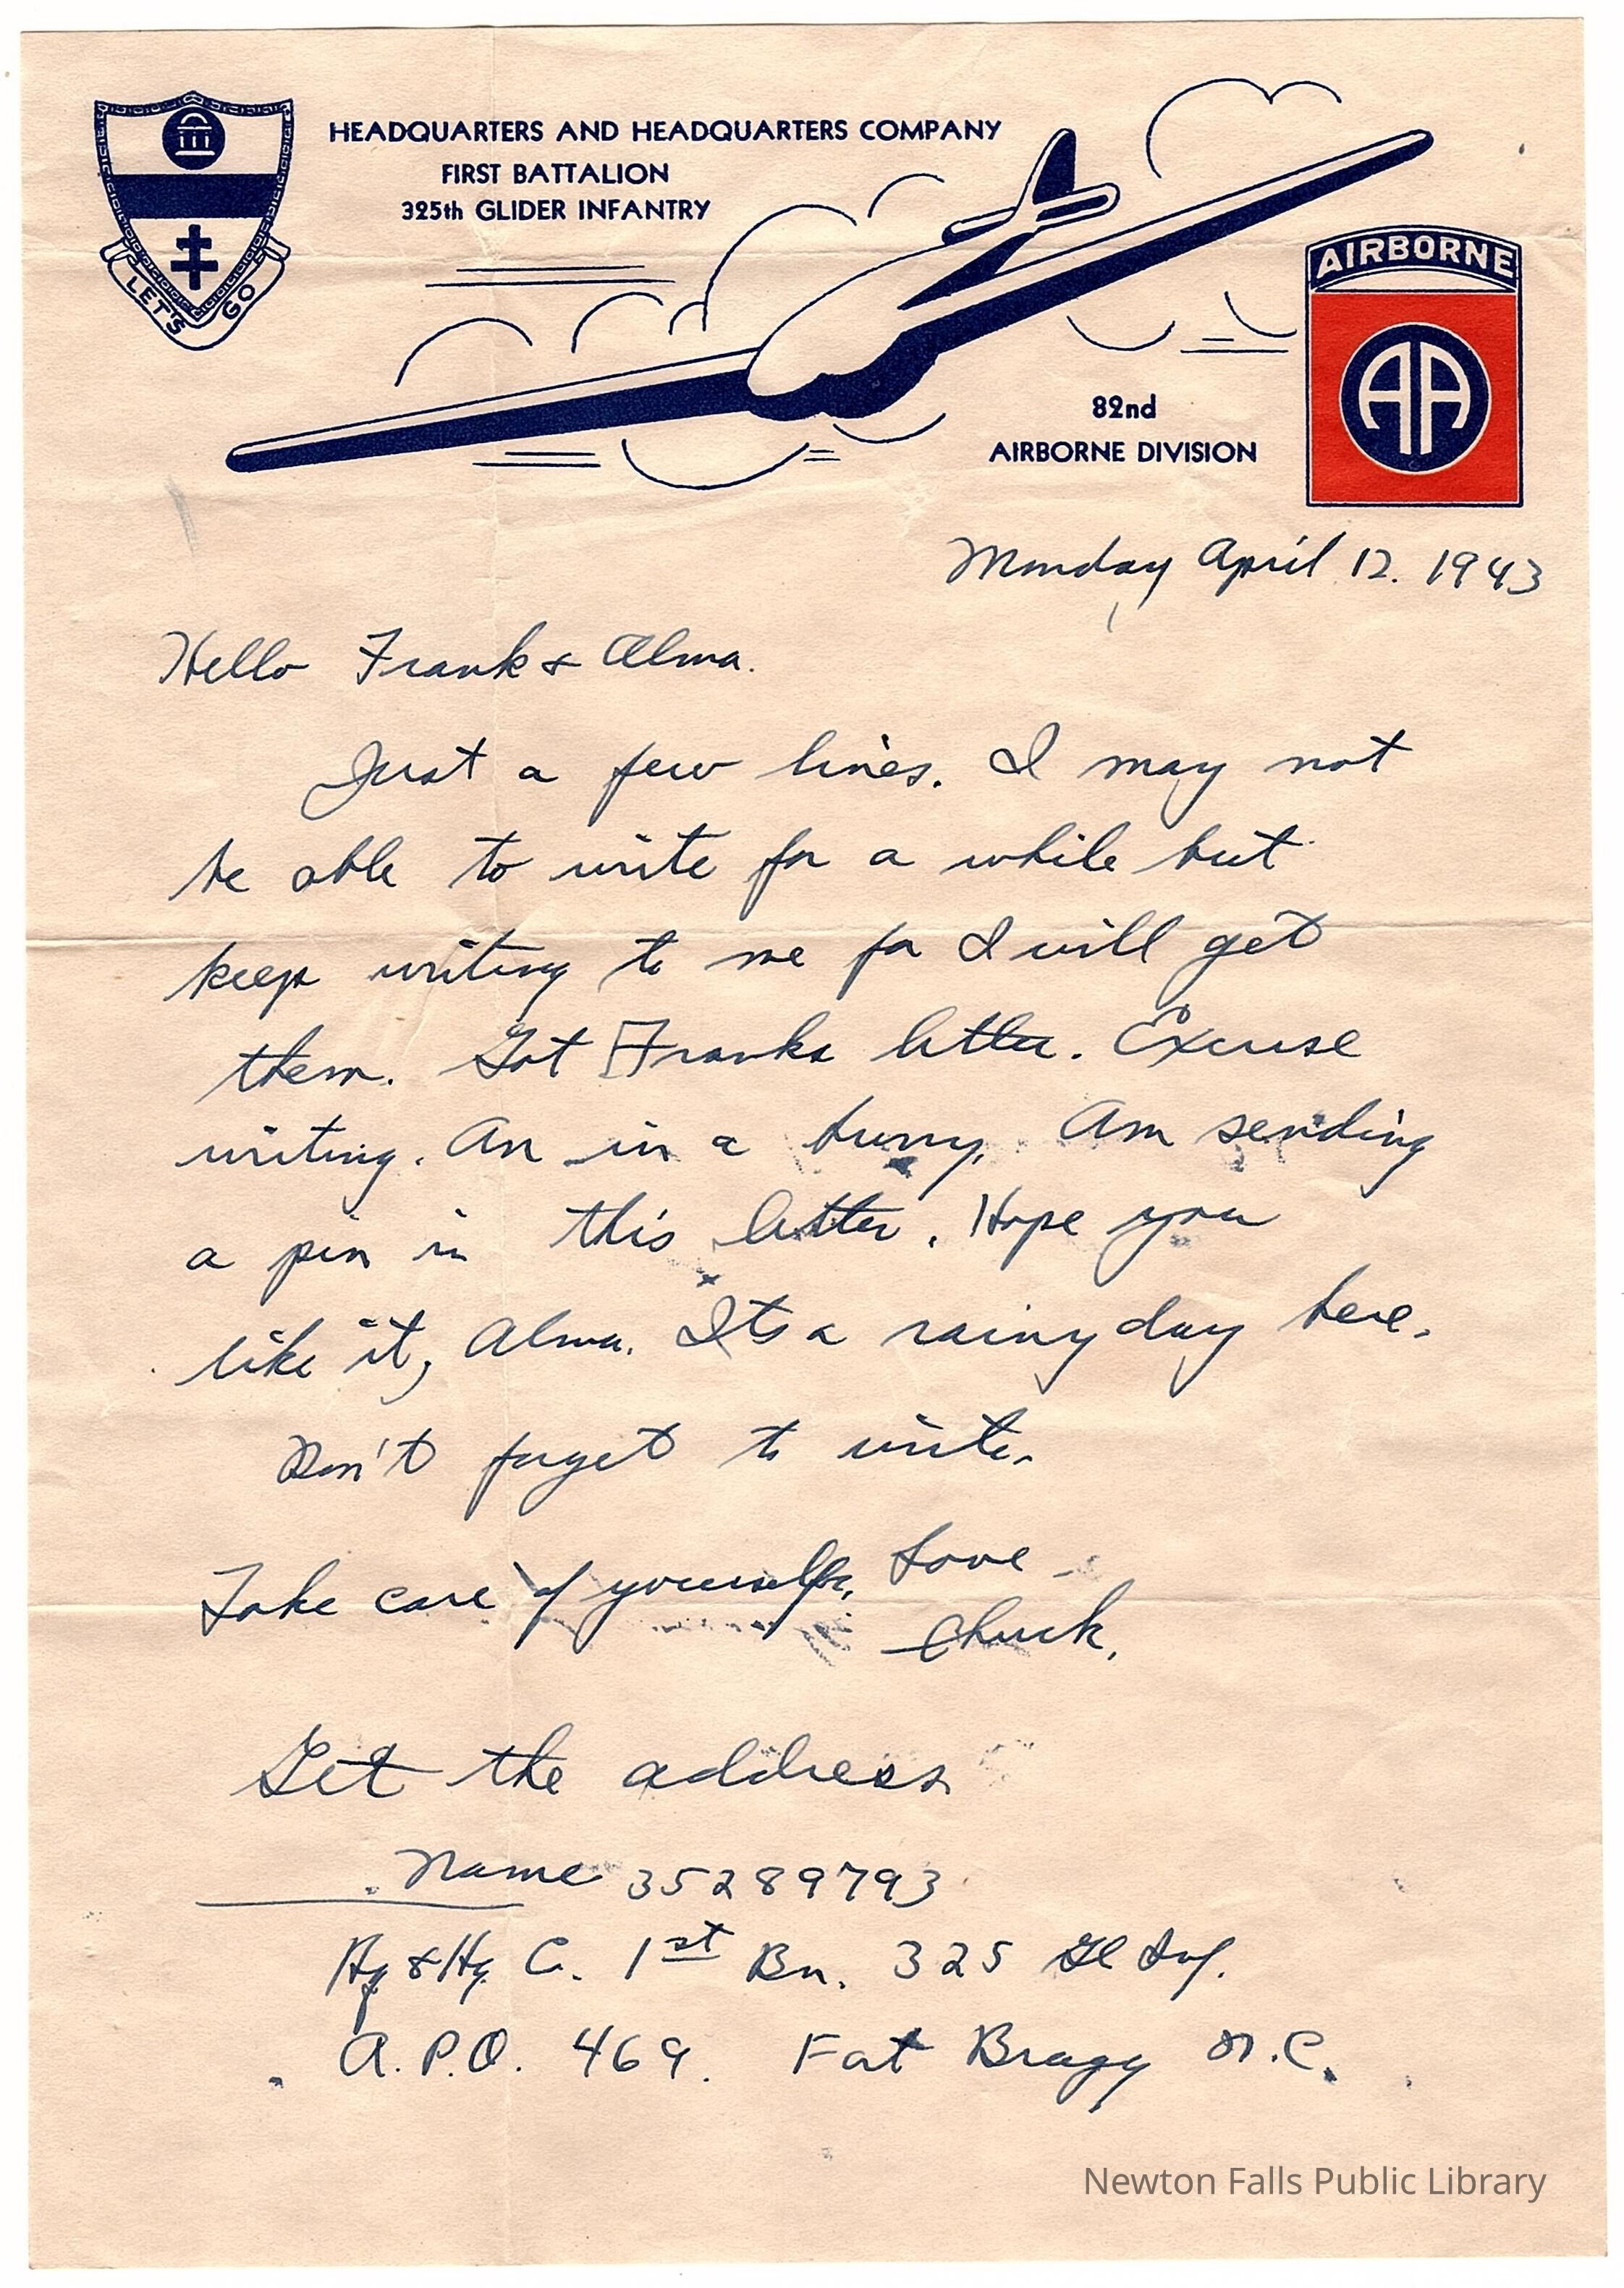 HEADQUARTERS AND HEADQUARTERS COMPANY
FIRST BATTALION
325th GLIDER INFANTRY
LET'S GO
AIRBORNE
AA
82nd
AIRBORNE DIVISION
Monday April 12. 1943
Hello Frank & Alma.
Just a few lines. I may not
be able to write for a while but
keep writing to me for I will get
them. Got Franks letter. Excuse
writing. Am in a hurry. Am sending
a pin in this letter. Hope you
like it, Alma. Its a rainy day here.
Don't forget to write.
Take care of yourselfs, Love
Chuck.
Get the address
Name 35289793
Hq & Hq Co. 1st Bn. 325 Gl Inf.
A.P.O. 469. Fort Bragg N.C.
Newton Falls Public Library